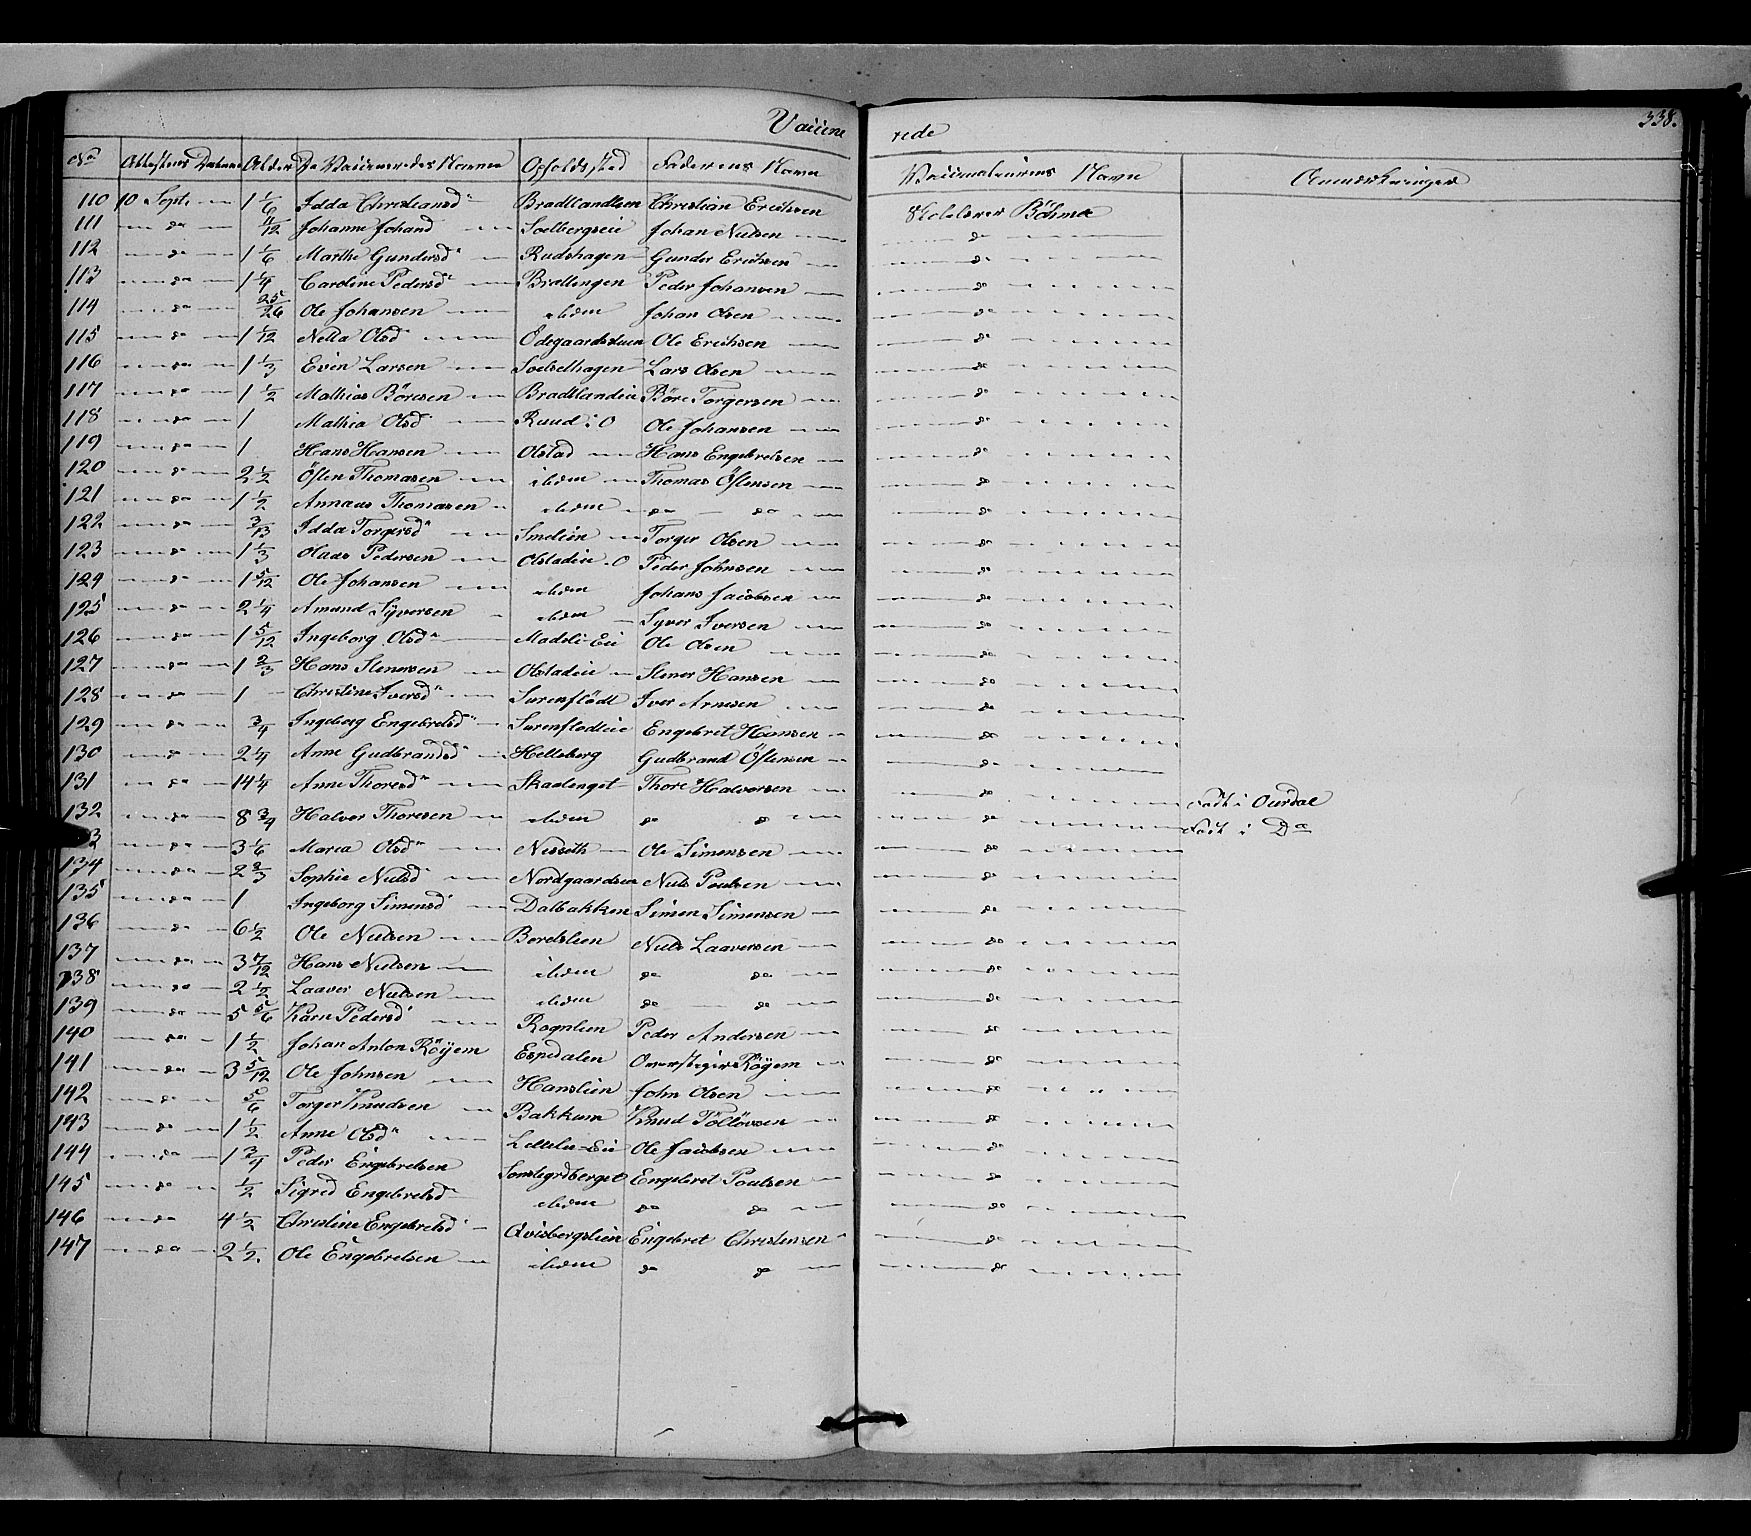 Vaccine rede 338.
No Attestens Datum Alder De Vaccineredes Navne Opholdssted Faderens Navn Vaccinateurens Navn Anmærkninger
110 10 Septr 1 1/6 Idda Christiansd Bradtlandsen Christian Erichsen Skolelærer Böhmer
111 — do — 11/12 Johanne Johansd Soelbergseie Johan Nielsen — do —
112 — do — 1 1/6 Marthe Gundersd Rudshagen Gunder Erichsen — do —
113 — do — 1 1/4 Caroline Pedersd Brætlengen Peder Johansen — do —
114 — do — 25/26 Ole Johansen ibidem Johan Olsen — do —
115 — do — 1 1/12 Netta Olsd Ödegaardsstuen Ole Erichsen — do —
116 — do — 1 1/3 Even Larsen Soelsethagen Lars Olsen — do —
117 — do — 1 1/2 Mathias Böresen Bradtlandseie Böre Torgersen — do —
118 — do — 1 Mathia Olsd Ruud: O Ole Johansen — do —
119 — do — 1 Hans Hansen Olstad Hans Engebretsen — do —
120 — do — 2 1/2 Östen Thomasen ibidem Thomas Östensen — do —
121 — do — 1 1/2 Annaus Thomasen ibidem do — do — do —
122 — do — 3/13 Idda Torgersd Smelien Torger Olsen — do —
123 — do — 1 1/3 Claas Pedersen Olstadeie O Peder Johnsen — do —
124 — do — 1 5/12 Ole Johansen ibidem Johans Jacobsen — do —
125 — do — 2 1/4 Amund Syversen ibidem Syver Iversen — do —
126 — do — 1 5/12 Ingeborg Olsd Madsli-Eie Ole Olsen — do —
127 — do — 1 2/3 Hans Stenersen Olstadeie Stener Hansen — do —
128 — do — 1 Christine Iversd Surenflödt Iver Arnesen — do —
129 — do — 3/4 Ingeborg Engebretsd Surenflodeie Engebret Hansen — do —
130 — do — 2 1/4 Anne Gudbrandsd Helleberg Gudbrand Östensen — do —
131 — do — 14 1/4 Anne Thoresd Skaalenget Thore Halvorsen — do — Födt i Ourdal
132 — do — 8 3/4 Halvor Thoresen ibidem do do — do — Födt i Do
3 — do — 3 1/6 Marea Olsd Nesseth Ole Simensen — do —
134 — do — 2 2/3 Sophie Nielsd Nordgaardseie Niels Poulsen — do —
135 — do — 1 Ingeborg Simensd Dalbakken Simen Simensen — do —
136 — do — 6 1/2 Ole Nielsen Boretslien Niels Laaversen — do —
137 — do — 3 7/12 Hans Nielsen ibidem do do — do —
138 — do — 2 1/2 Laaver Nielsen ibidem do — do — do —
139 — do — 5 5/6 Karn Pedersd Rognlien Peder Andersen — do —
140 — do — 1 1/2 Johan Anton Röyem Espedalen Overstiger Röyem — do —
141 — do — 3 5/12 Ole Johnsen Hanslien John Olsen — do —
142 — do — 5/6 Torger Knudsen Bakkum Knud Töllövsen — do —
143 — do — 1 1/2 Anne Olsd Lillelee-Eie Ole Jacobsen — do —
144 — do — 1 3/4 Peder Engebretsen Sonstegrdberget Engebret Poulsen — do —
145 — do — 1/2 Sigred Engebretsd ibidem do do — do —
146 — do 4 1/2 Christine Engebretsd Qvisbergslien Engebret Christensen — do —
147 — do — 2 1/2 Ole Engebretsen ibidem do do — do —